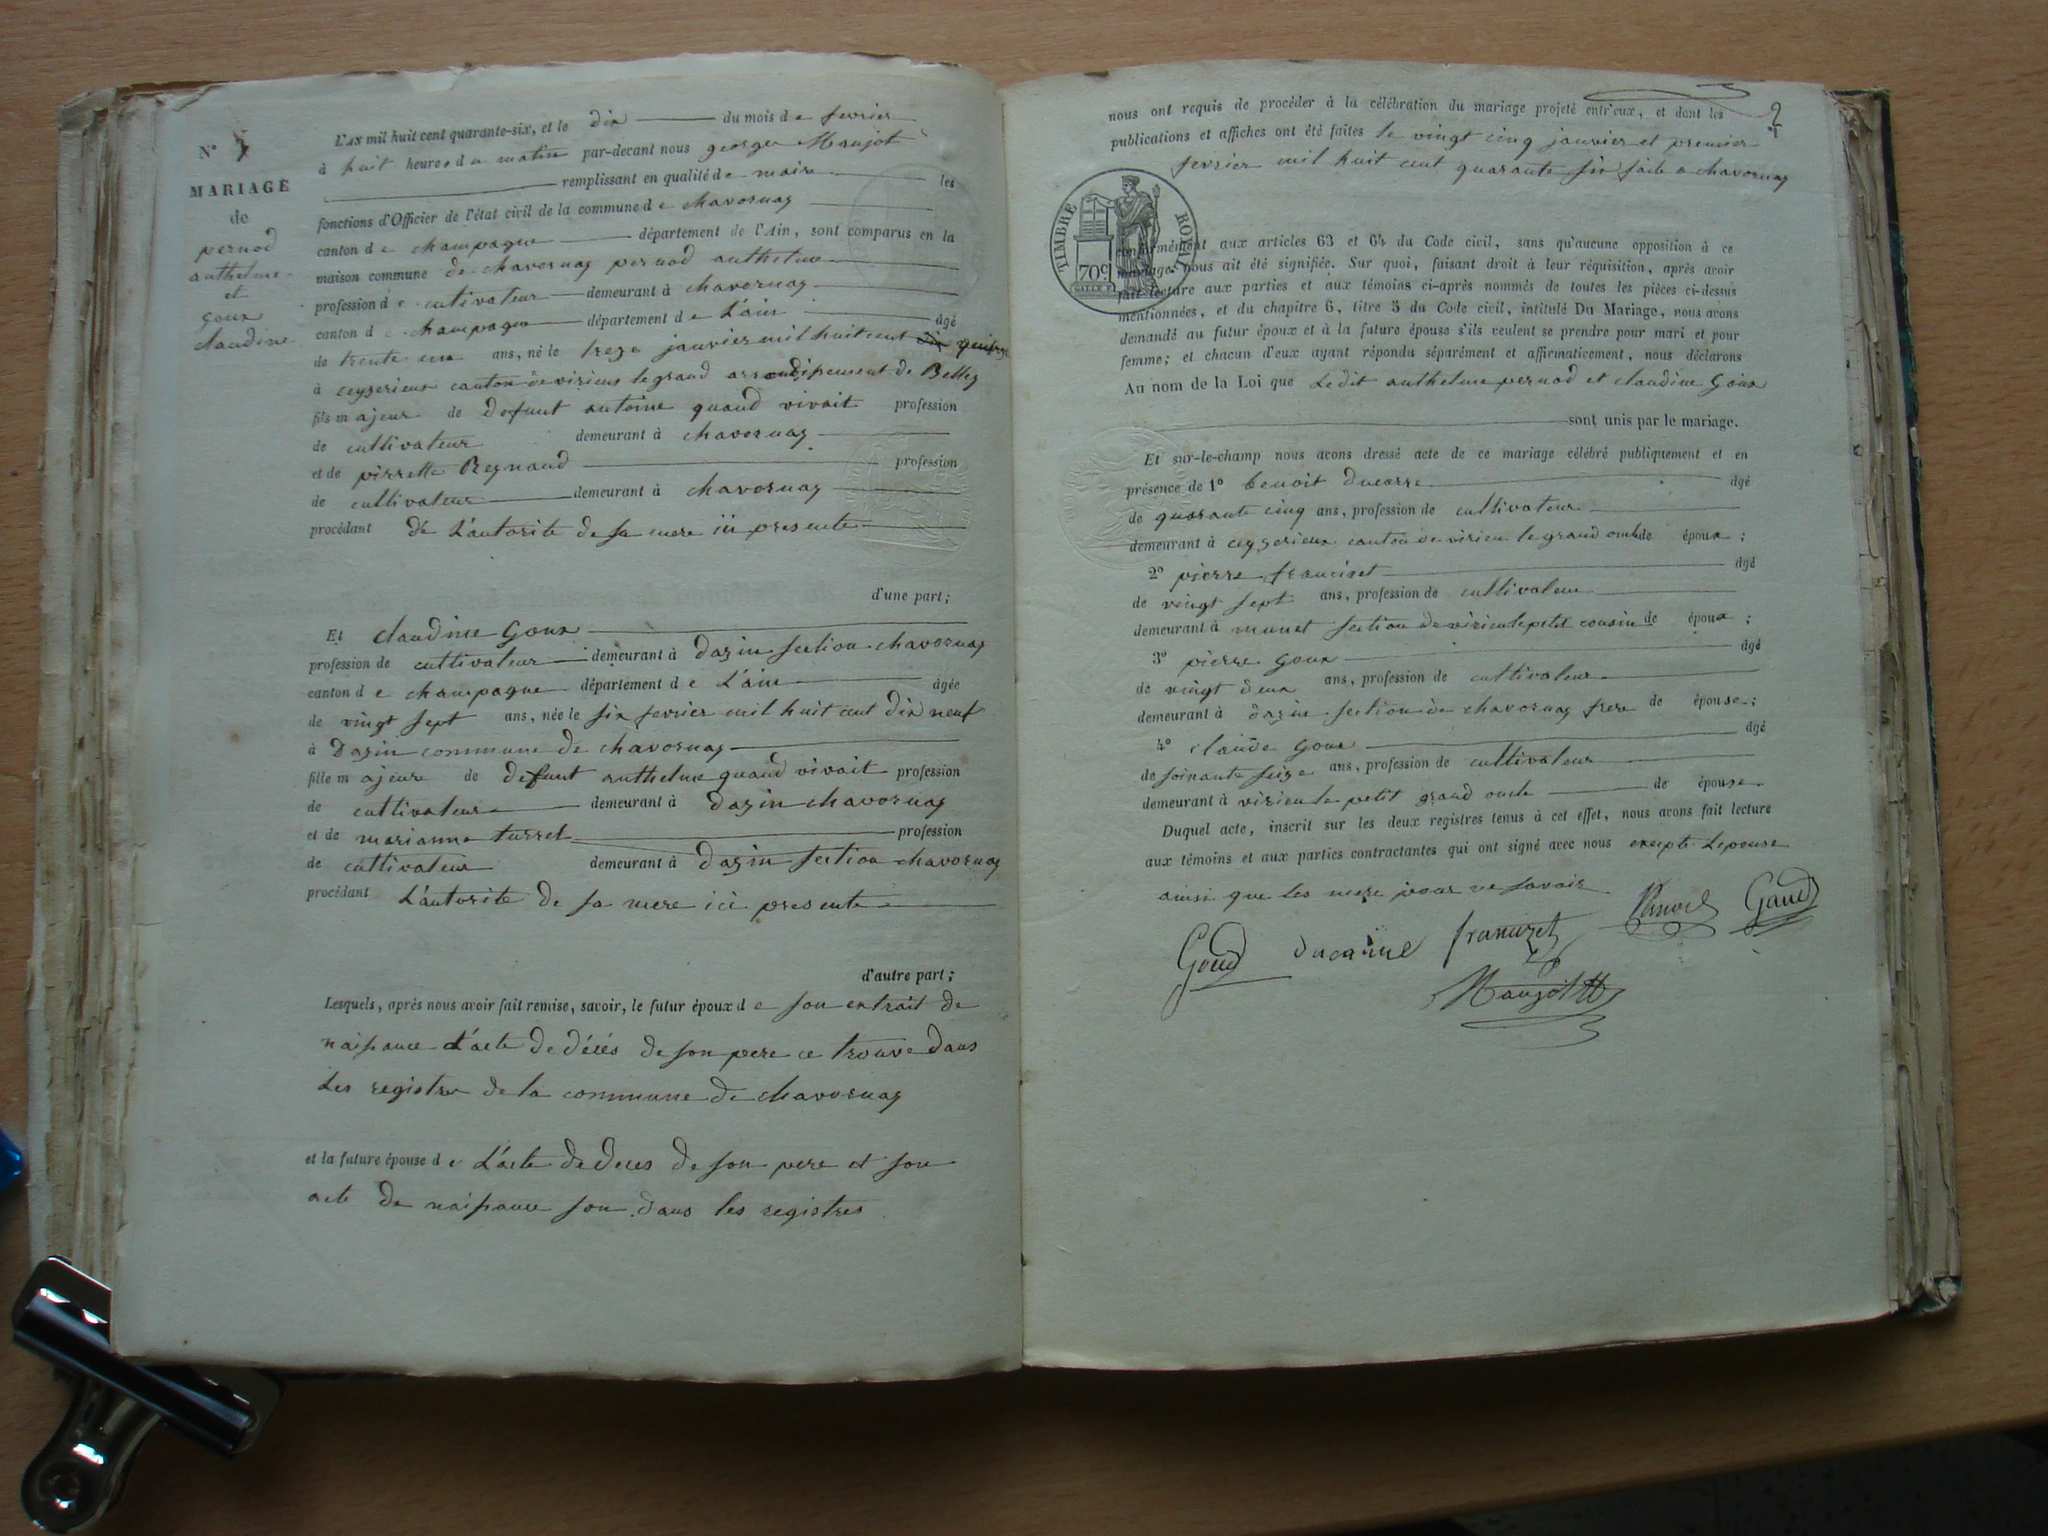 N°
MARIAGE
de
pernod
anthelme
et
goux
claudine
L'AN mil huit cent quarante-six, et le dix du mois de fevrier
à huit heures du matin par-devant nous george Maujot
remplissant en qualité de maire les
fonctions d'Officier de l'état civil de la commune de chavornay
canton de champagne département de l'Ain, sont comparus en la
maison commune de chavornay pernod anthelme
profession de cultivateur demeurant à chavornay
canton de champagne département de L'ain âgé
de trente un ans, né le treze janvier mil huit cent quinze
à ceyzerieux canton de virieux le grand arrondissement de Belley
fils majeur de defunt antoine quand vivait profession
de cultivateur demeurant à chavornay
et de pierrette Reynaud profession
de cultivateur demeurant à chavornay
procédant de L'autorite de sa mere ici presente
d'une part;
Et claudine Goux
profession de cultivateur demeurant à dazin section chavornay
canton de champagne département de L'ain âgée
de vingt sept ans, née le six fevrier mil huit cent dix neuf
à Dazin commune de chavornay
fille majeure de defunt anthelme quand vivait profession
de cultivateur demeurant à dazin chavornay
et de marianne turrel profession
de cultivateur demeurant à dazin section chavornay
procédant L'autorite de sa mere ici presente
d'autre part;
Lesquels, après nous avoir fait remise, savoir, le futur époux de son extrait de
naissance L'acte de décés de son pere ce trouve dans
Les registre de la commune de chavornay
et la future épouse de L'acte de deces de son pere et son
acte de naissance son dans les registres
2
nous ont requis de procéder à la célébration du mariage projeté entr'eux, et dont les
publications et affiches ont été faites le vingt cinq janvier et premier
fevrier mil huit cent quarante six faite a chavornay
TIMBRE ROYAL
70c
conformément aux articles 63 et 64 du Code civil, sans qu'aucune opposition à ce
mariage nous ait été signifiée. Sur quoi, faisant droit à leur réquisition, après avoir
fait lecture aux parties et aux témoins ci-après nommés de toutes les pièces ci-dessus
mentionnées, et du chapitre 6, titre 5 du Code civil, intitulé Du Mariage, nous avons
demandé au futur époux et à la future épouse s'ils veulent se prendre pour mari et pour
femme; et chacun d'eux ayant répondu séparément et affirmativement, nous déclarons
Au nom de la Loi que Ledit anthelme pernod et claudine Goux
sont unis par le mariage.
Et sur-le-champ nous avons dressé acte de ce mariage célébré publiquement et en
présence de 1° benoit ducarre âgé
de quarante cinq ans, profession de cultivateur
demeurant à ceyzerieux canton de virieu le grand oncle de époux;
2° pierre francizet âgé
de vingt sept ans, profession de cultivateur
demeurant à munet section de virieu le petit cousin de époux;
3° pierre goux âgé
de vingt deux ans, profession de cultivateur
demeurant à dazin section de chavornay frere de épouse;
4° claude goux âgé
de soixante seize ans, profession de cultivateur
demeurant à virieu le petit grand oncle de épouse
Duquel acte, inscrit sur les deux registres tenus à cet effet, nous avons fait lecture
aux témoins et aux parties contractantes qui ont signé avec nous exepte Lepouse
ainsi que les mere pour ne savoir
Goud francizet Goud